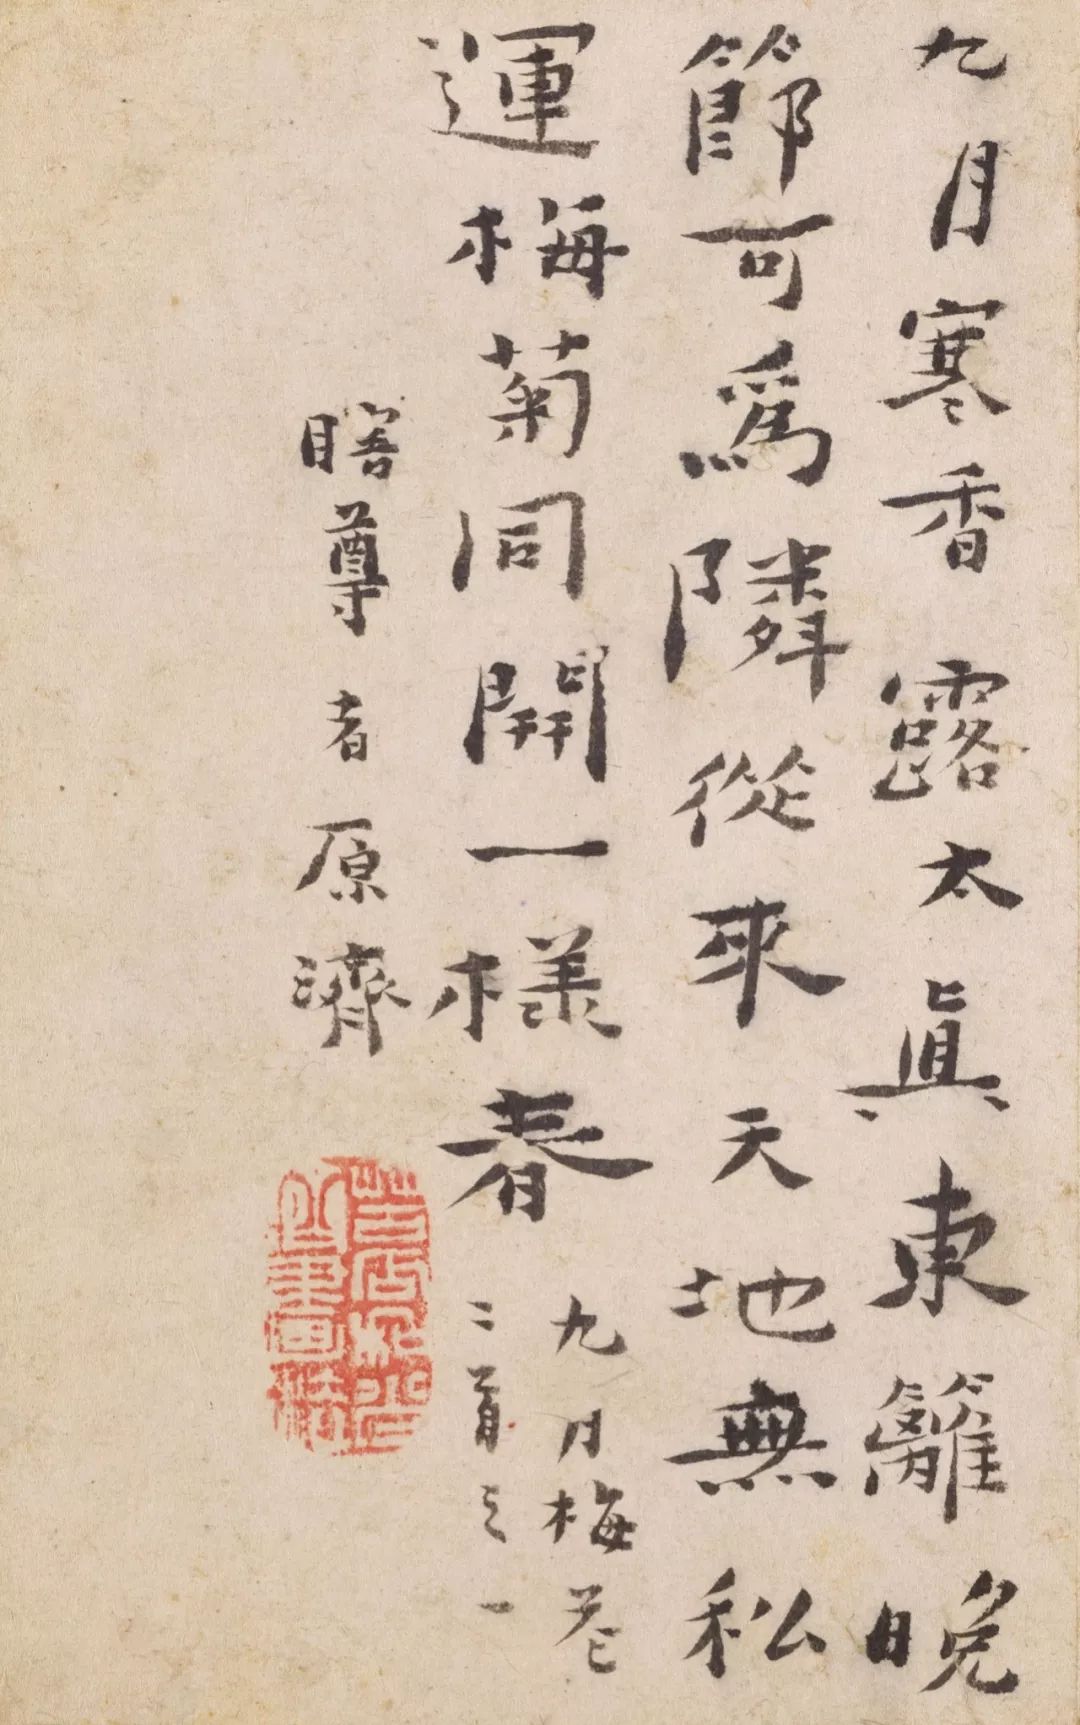 九月寒香露太眞東籬晚
節可爲隣從來天地無私
運梅菊同開一様春
九月梅花
二首之一
瞎尊者原濟